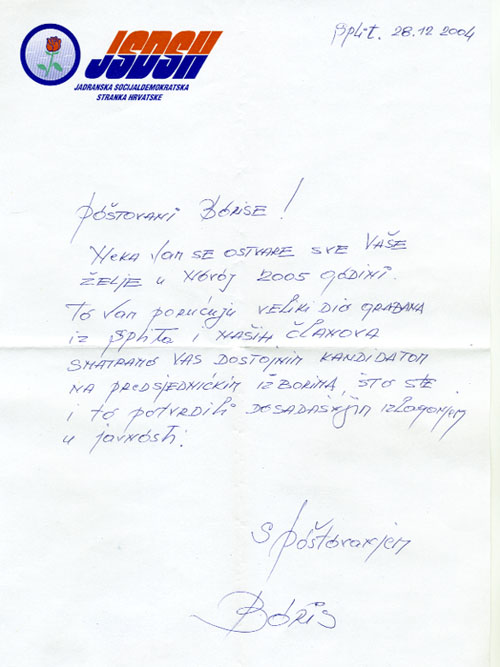 JSDSH
JADRANSKA SOCIJALDEMOKRATSKA
STRANKA HRVATSKE
Split. 28.12 2004
POŠTOVANI BORISE!
NEKA VAM SE OSTVARE SVE VAŠE
ŽELJE U NOVOJ 2005 GODINI.
TO VAM PORUČUJU VELIKI DIO GRAĐANA
IZ SPLITA I NAŠIH ČLANOVA
SMATRAMO VAS DOSTOJNIM KANDIDATOM
NA PREDSJEDNIČKIM IZBORIMA, ŠTO STE
I TO POTVRDILI DOSADAŠNJIM IZLAGANJEM
U JAVNOSTI.
S poštovanjem
BORIS